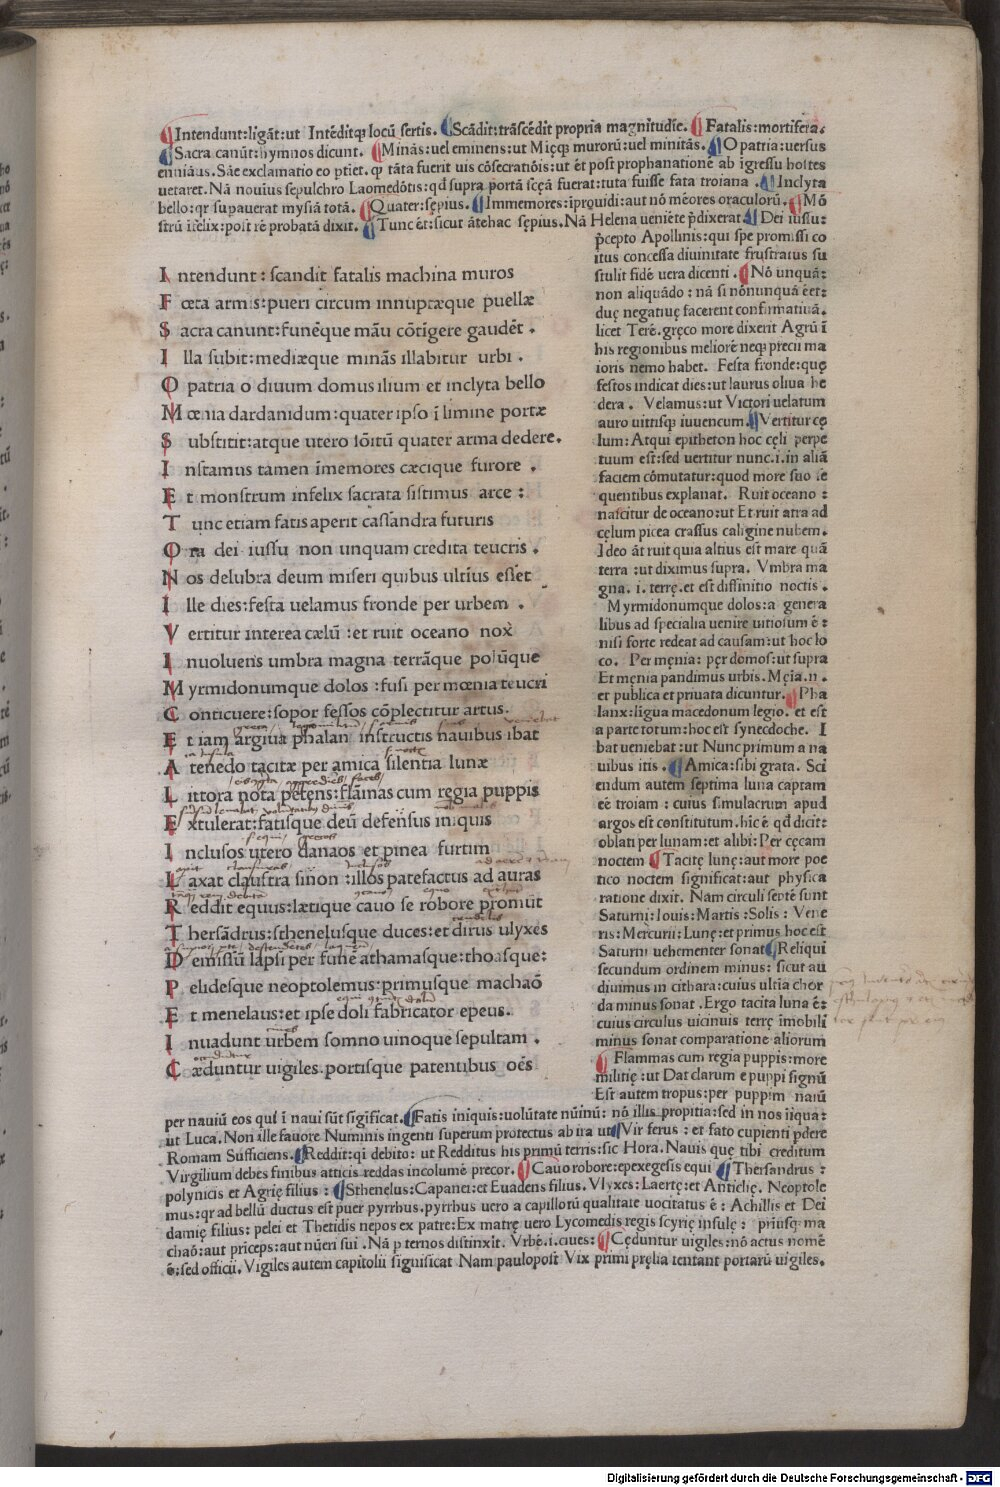 Intendunt:ligāt:ut Intēditq; locū sertis. Scādit:trāscēdit propria magnitudīe. Fatalis:mortifera.
Sacra canūt:hymnos dicunt. Minās:uel eminens:ut Mięq; murorū:uel minitās. O patria:uersus
ennianus. Sāe exclamatio eo ptiet. q tāta fuerit uis cōsecratiōis:ut ēt post prophanationē ab īgressu hostes
uetaret. Nā nouius sepulchro Laomedōtis:qd supra portā scęā fuerat:tuta fuisse fata troiana. Inclyta
bello:qr supauerat mysiā totā. Quater:sępius. Immemores:iprouidi:aut nō mēores oraculorū. Mō
strū īfelix:post rē probatā dixit. Tunc ēt:sicut ātehac sępius. Nā Helena ueniēte pdixerat. Dei iussu:
Intendunt : scandit fatalis machina muros
Fœta armis:pueri circum innuptæque puellæ
Sacra canunt:funēque māu cōtīgere gaudēt .
Illa subit:mediæque minās illabitur urbi .
O patria o diuum domus ilium et inclyta bello
Mœnia dardanidum:quater ipso ī limine portæ
Substitit:atque utero sōitū quater arma dedere.
Instamus tamen īmemores cæcique furore .
Et monstrum infelix sacrata sistimus arce :
Tunc etiam fatis aperit cassandra futuris
Ora dei iussu non unquam credita teucris .
Nos delubra deum miseri quibus ultīus esset
Ille dies:festa uelamus fronde per urbem .
Vertitur interea cælū :et ruit oceano nox
Inuoluens umbra magna terrāque polūque
Myrmidonumque dolos :fusi per mœnia teucri
Conticuere:sopor fessos cōplectitur artus.
Et iam argiua phalan instructis nauibus ibat
A tenedo tacitæ per amica silentia lunæ
Littora nota petens:flāmas cum regia puppis
Extulerat:fatisque deū defensus iniquis
Inclusos utero danaos et pinea furtim
Laxat claustra sinon :illos patefactus ad auras
Reddit equus:lætique cauo se robore promūt
Thersādrus:sthenelusque duces:et dirus ulyxes
Demissū lapsi per funē athamasque:thoasque:
Pelidesque neoptolemus:primusque machaō
Et menelaus:et ipse doli fabricator epeus.
Inuadunt urbem somno uinoque sepultam .
Cæduntur uigiles.portisque patentibus oēs
pcepto Apollinis:qui spe promissi co
itus concessa diuinitate frustratus su
stulit fidē uera dicenti. Nō unquā:
non aliquādo : nā si nōnunquā ēet:
duę negatiuę facerent confirmatiuā.
licet Terē.gręco more dixerit Agrū ī
his regionibus meliorē neq; precii ma
ioris nemo habet. Festa fronde:quę
festos indicat dies:ut laurus oliua he
dera. Velamus:ut Victori uelatum
auro uittisq; iuuencum. Vertitur cę
lum: Atqui epitheton hoc cęli perpe
tuum est:sed uertitur nunc.i.in aliā
faciem cōmutatur:quod more suo se
quentibus explanat. Ruit oceano :
nascitur de oceano:ut Et ruit atra ad
cęlum picea crassus caligine nubem.
Ideo āt ruit quia altius est mare quā
terra :ut diximus supra. Vmbra ma
gna. i. terrę.et est diffinitio noctis .
Myrmidonumque dolos:a genera
libus ad specialia uenire uitiosum ē :
nisi forte redeat ad causam:ut hoc lo
co. Per męnia: per domos:ut supra
Et męnia pandimus urbis. Męia.n.
et publica et priuata dicuntur. Pha
lanx:ligua macedonum legio. et est
a parte totum:hoc est synecdoche. I
bat ueniebat :ut Nunc primum a na
uibus itis . Amica:sibi grata. Sci
endum autem septima luna captam
eē troiam : cuius simulacrum apud
argos est constitutum.hic ē qd dicit:
oblati per lunam:et alibi:Per cęcam
noctem Tacitę lunę:aut more poe
tico noctem significat:aut physica
ratione dixit. Nam circuli septē sunt
Saturni:Iouis:Martis :Solis : Vene
ris:Mercurii:Lunę:et primus hoc est
Saturni uehementer sonat Reliqui
secundum ordinem minus: sicut au
diuimus in cithara:cuius ultia chor
da minus sonat .Ergo tacita luna ē:
cuius circulus uicinuis terrę īmobili
minus sonat comparatione aliorum
Flammas cum regia puppis:more
militię :ut Dat clarum e puppi signū
Est autem tropus:per puppim nauū
per nauiū eos qui ī naui sūt sigificat. Fatis iniquis:uolūtate nūinū: nō illis propitia:sed in nos iiqua:
ut Luca. Non ille fauore Numinis ingenti superum protectus ab ira ut Vir ferus : et fato cupienti pdere
Romam Sufficiens. Reddit:qi debito: ut Redditus his primū terris:sic Hora. Nauis quę tibi creditum
Virgilium debes finibus atticis reddas incolumē precor. Cauo robore:epexegesis equi Thersandrus :
polynicis et Agrię filius : Sthenelus:Capanei:et Euadens filius. Vlyxes: Laertę:et Anticlię. Neoptole
mus:qr ad bellū ductus est puer pyrrhus.pyrrhus uero a capillorū qualitate uocitatus ē : Achillis et Dei
damię filius: pelei et Thetidis nepos ex patre:Ex matrę uero Lycomedis regis scyrię insulę : prīusq; ma
chaō:aut priceps:aut nūeri sui . Nā p ternos distinxit. Vrbē.i.ciues: Cęduntur uigiles:nō actus nomē
ē:sed officii. Vigiles autem capitolii significat Nam paulopost Vix primi pręlia tentant portarū uigiles.
Digitalisierung gefördert durch die Deutsche Forschungsgemeinschaft - DFG